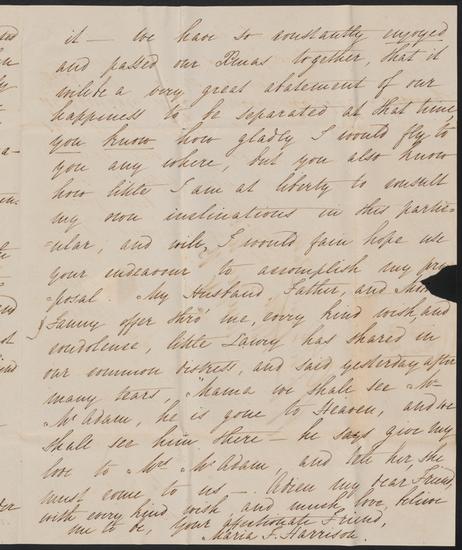 it — we have so constantly enjoyed
and passed our Xmas together, that it
will be a very great abatement of our
happiness to be separated at that time,
you know how gladly I would fly to
you any where, but you also know
how little I am at liberty to consult
my own inclinations in this partic-
-ular, and will, I would fain hope use
your endeavour to accomplish my pro
-posal. My Husband, Father, and
Fanny offer thro' me, every kind wish, and
condolence, little Lawry has shared in
our common distress, and said yesterday after
many tears, "Mama we shall see Mr
McAdam, he is gone to Heaven, and we
shall see him there — he says give my
love to Mrs McAdam, and tell her, she
must come to us —. Adieu my dear Friend,
with every kind wish and much love believe
me to be, your affectionate Friend,
Maria F. Harrison.